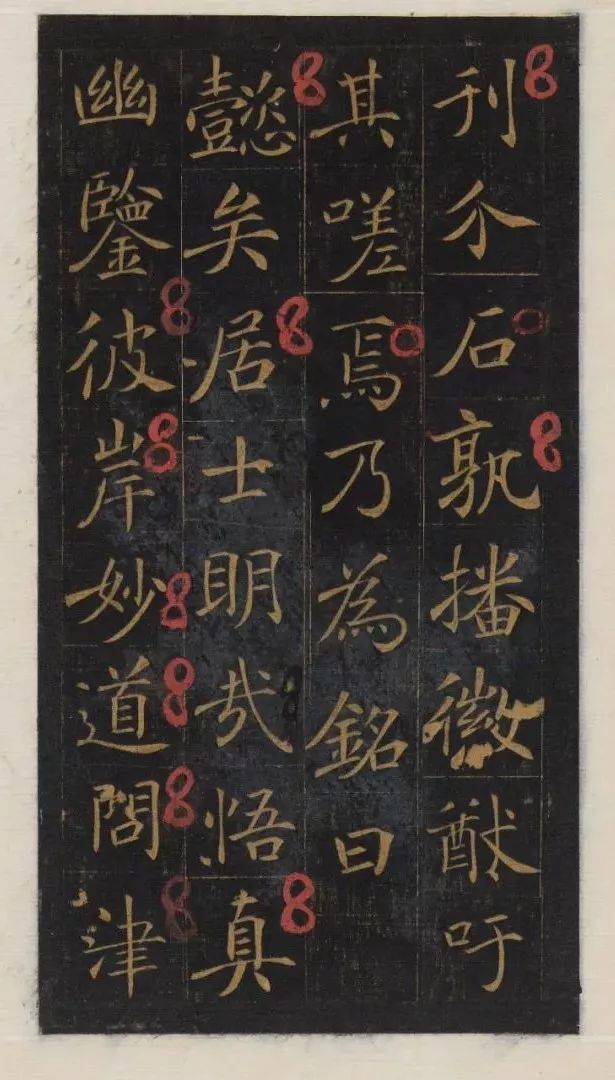 刊介石孰播徽猷吁
其嗟焉乃為銘曰
懿矣居士眀哉悟真
幽鑒彼岸妙道問津